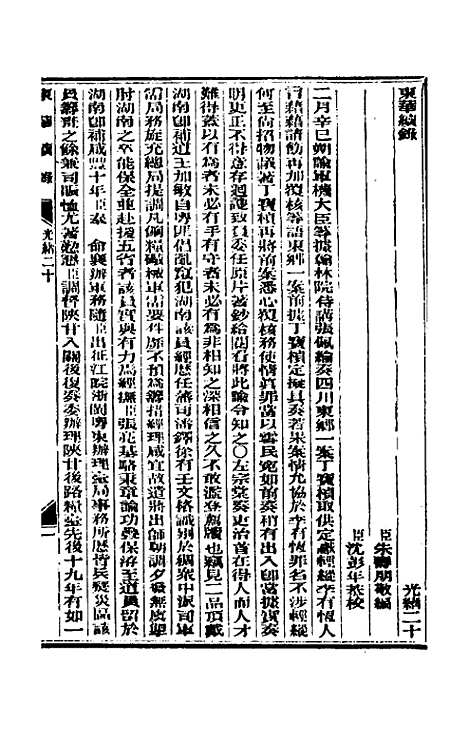 東華續錄
光緒二十
臣朱壽朋敬編
臣沈彭年恭校
二月辛巳朔諭軍機大臣等據翰林院侍講張佩綸奏四川東鄉一案丁寶楨取供定讞輕縱李有恆人
言藉藉請飭再加覆核等語東鄉一案前據丁寶楨定擬具奏若果案情允協於李有恆罪名不涉輕縱
何至尚招物議著丁寶楨再將前案悉心覆核務使情真罪當以雪民冤如前奏稍有出入即當據實奏
明更正不得意存迴護致負委任原片著鈔給閱看將此諭令知之○左宗棠奏吏治首在得人而人才
難得蓋以有為者未必有守有守者未必有為非相知之深相信之久不敢濫登薦牘也竊見二品頂戴
湖南即補道王加敏自粵匪倡亂竄犯湖南該員經歷任藩司潘鐸徐有壬文格識別於稠眾中派司軍
需局務旋充總局提調凡餉糧礮械軍需要件靡不預為籌措經理咸宜故道將出師朝調夕發無虞坐
肘湖南之卒能保全並赴援五省者該員實與有力焉經撫臣張亮基駱秉章論功疊保洊至道員留於
湖南即補咸豐十年臣奉　命襄辦軍務隨臣出征江皖浙閩粵東辦理臺局事務所歷皆兵燹災區該
員籌兵之餘兼司賑恤尤著勤愨臣調督陝甘入關後復奏委辦理陝甘後路糧臺先後十九年有如一
東華續錄
光緒二十
一